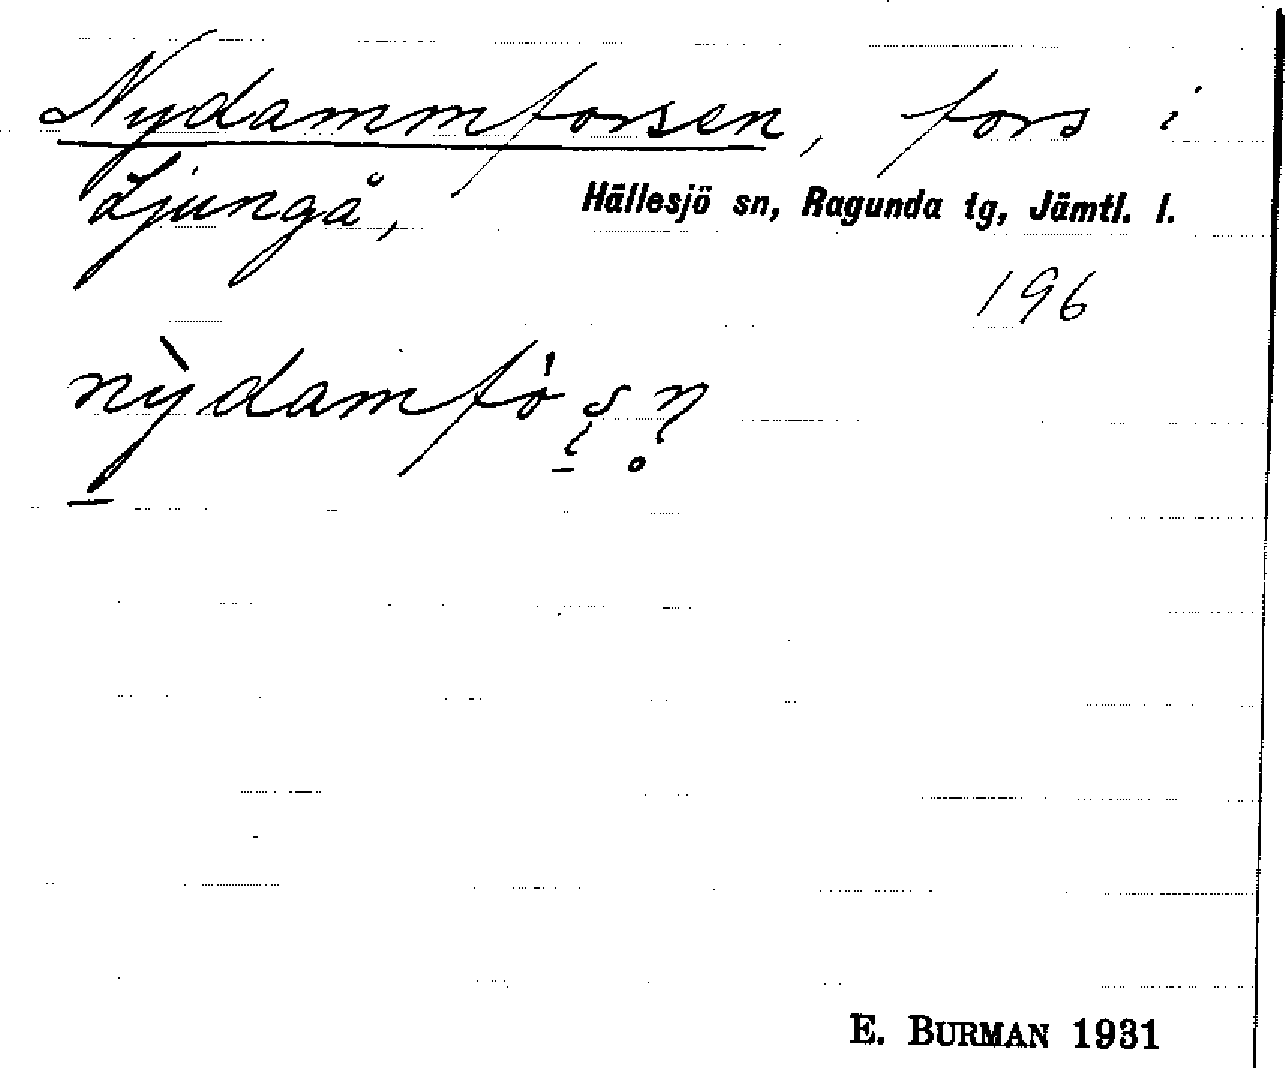 Nydammforsen, fors i
Ljungå, Hällesjö sn, Ragunda tg, Jämtl. l.
196
E. BURMAN 1931